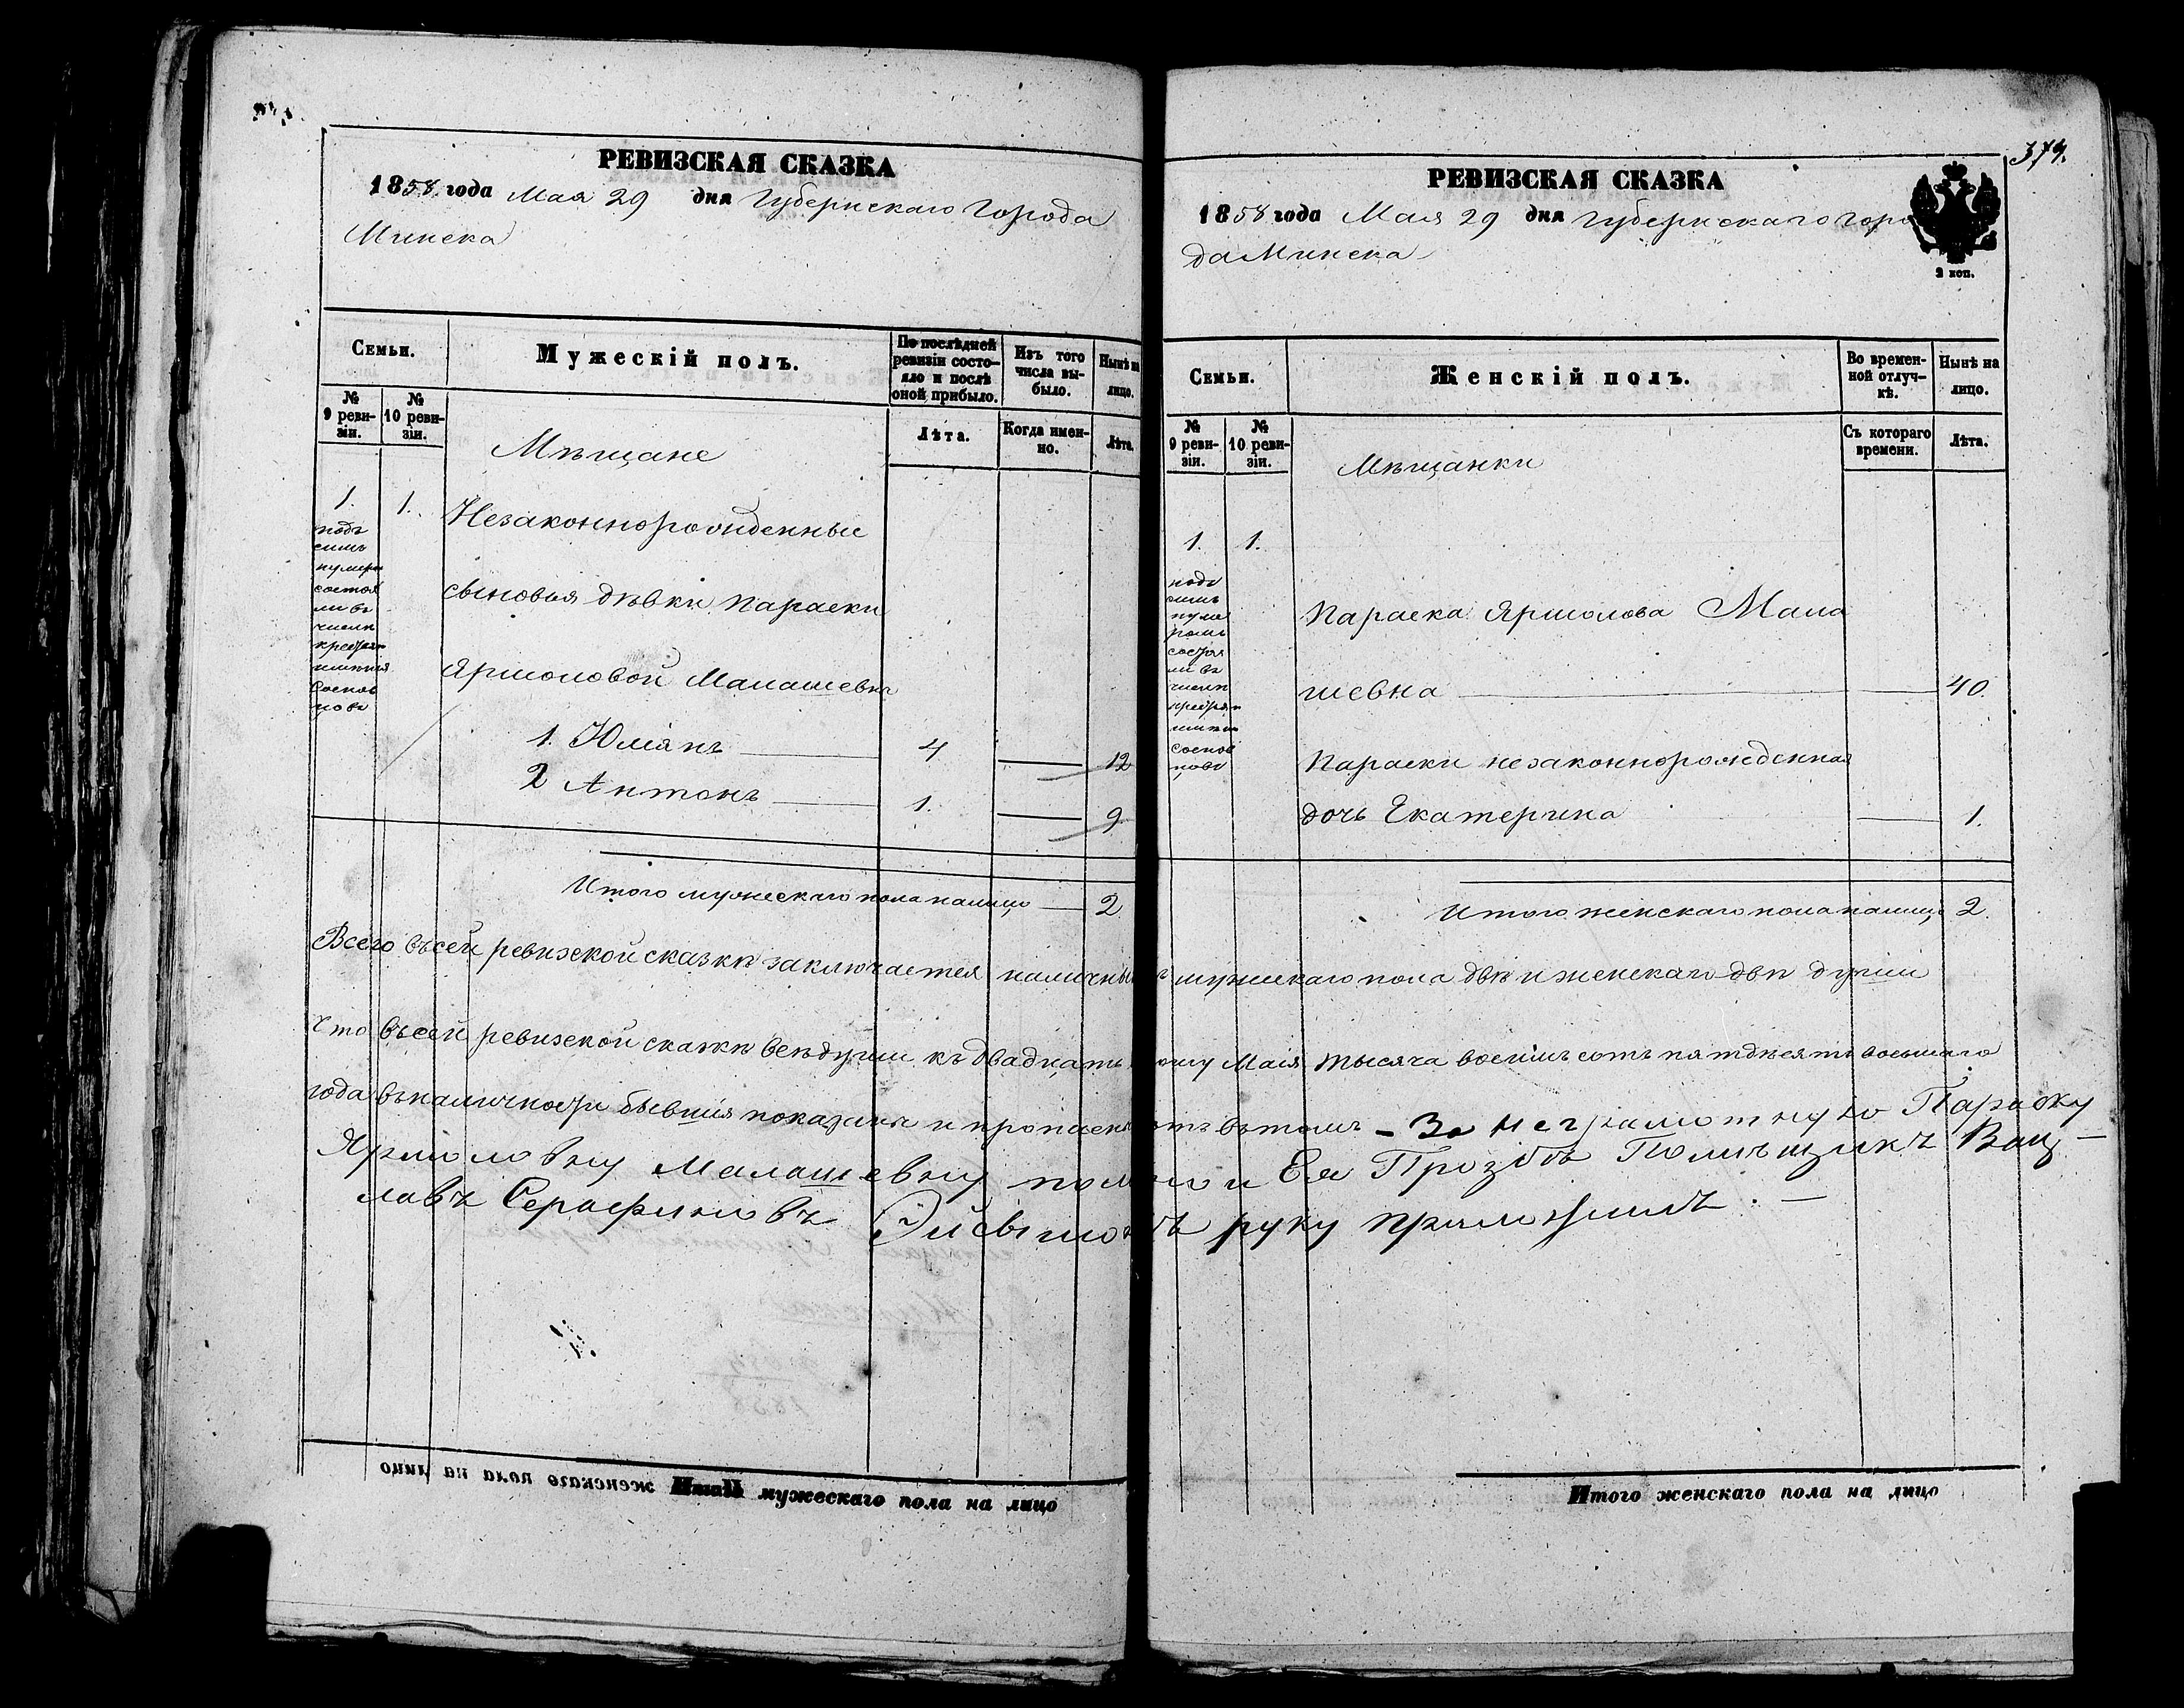 РЕВИЗСКАЯ СКАЗКА
1858 года Мая 29 дня Губернскаго Города
Минска
Семьи.
Мужескій полъ.
По послѣдней ревизіи состо-
яло и послѣ
оной прибыло.
Изъ того
числа вы-
было.
Нынѣ на
лицо.
№
9 реви-
зіи.
№
10 реви-
зіи.
Лѣта.
Когда имен-
но.
Лѣта.
Мѣщане
1. 1. Незаконнорожденные
подъ
симъ
нумеро
состоя
ли въ
числѣ
крестьян
имѣнія
Соснов
цовъ
сыновья дѣвки Параски
Ярмоловой Малашевны
1. Юліянъ 4 12
2 Антонъ 1. 9
Итого мужескаго пола налицо 2.
374.
РЕВИЗСКАЯ СКАЗКА
1858 года Мая 29 дня губернскаго горо
да Минска
2 коп.
Семьи.
Женскій полъ.
Во времен-
ной отлуч-
кѣ.
Нынѣ на
лицо.
№
9 реви-
зіи.
№
10 реви-
зіи.
Съ котораго
времени.
Лѣта.
Мѣщанки
1. 1.
подъ
симъ
нуме
ромъ
состоя
ли въ
числѣ
крестьян
имѣнія
Соснов
цовъ
Параска Ярмолова Мала
шевна 40.
Параски незаконнорожденная
дочь Екатерина 1.
Итого женскаго пола налицо 2.
Всего въ сей ревизской сказкѣ заключается наличныхъ мужескаго пола двѣ и женскаго двѣ души
Что въ сей ревизской сказкѣ всѣ души къ двадцать Мая тысяча восемь сотъ пятдесятъ восьмаго
года въ наличности бывшія показаны и прописныхъ нѣтъ въ томъ - За неграмотную Параску
Ярмоловну Малашевну по Ея Прозбѣ Помѣщикъ Вац-
лавъ Серафиновъ руку приложилъ. -
Итого мужескаго пола на лицо
Итого женскаго пола на лицо